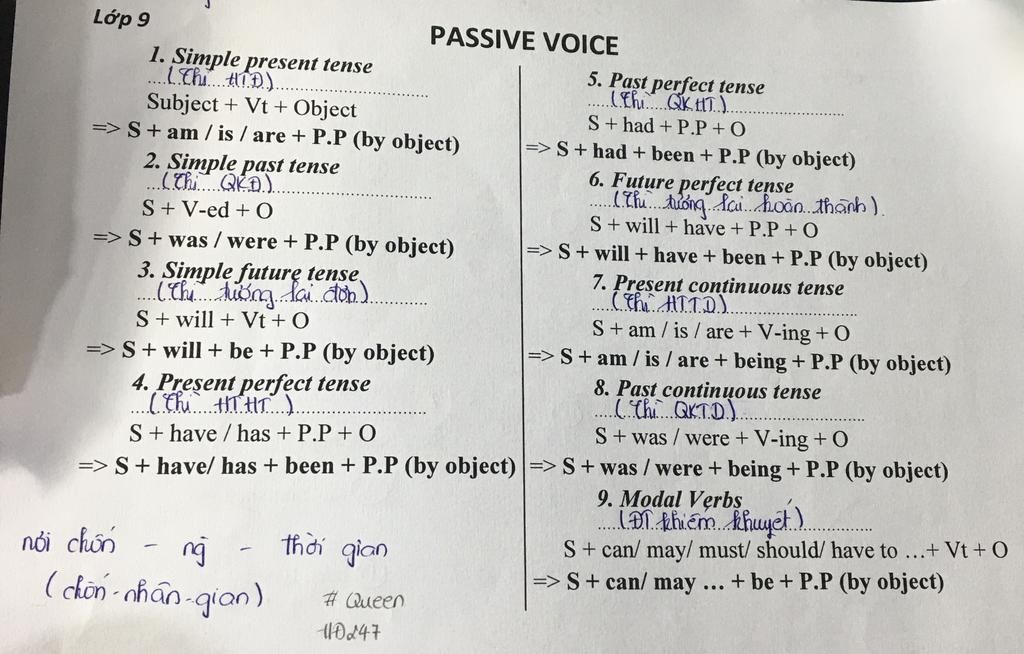 Lớp 9
PASSIVE VOICE
1. Simple present tense
(Thì HTĐ)
Subject + Vt + Object
=> S + am / is / are + P.P (by object)
2. Simple past tense
(Thì QKĐ)
S + V-ed + O
=> S + was / were + P.P (by object)
3. Simple future tense
(Thì tương lai đơn)
S + will + Vt + O
=> S + will + be + P.P (by object)
4. Present perfect tense
(Thì HTHT)
S + have / has + P.P + O
=> S + have/ has + been + P.P (by object)
5. Past perfect tense
(Thì QKHT)
S + had + P.P + O
=> S + had + been + P.P (by object)
6. Future perfect tense
(Thì tương lai hoàn thành)
S + will + have + P.P + O
=> S + will + have + been + P.P (by object)
7. Present continuous tense
(Thì HTTD)
S + am / is / are + V-ing + O
=> S + am / is / are + being + P.P (by object)
8. Past continuous tense
(Thì QKTD)
S + was / were + V-ing + O
=> S + was / were + being + P.P (by object)
9. Modal Verbs
(ĐT khiếm khuyết)
S + can/ may/ must/ should/ have to …+ Vt + O
=> S + can/ may … + be + P.P (by object)
nơi chốn - ng - thời gian
(chốn-nhân-gian)
# Queen